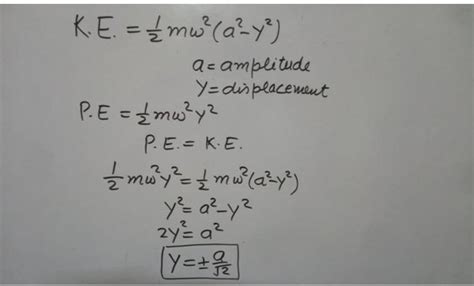 K.E. = ½ mω²(a²-y²)
a = amplitude
Y = displacement
P.E = ½ mω²y²
P.E. = K.E.
½ mω²y² = ½ mω²(a²-y²)
y² = a²-y²
2y² = a²
Y = ± a/√2